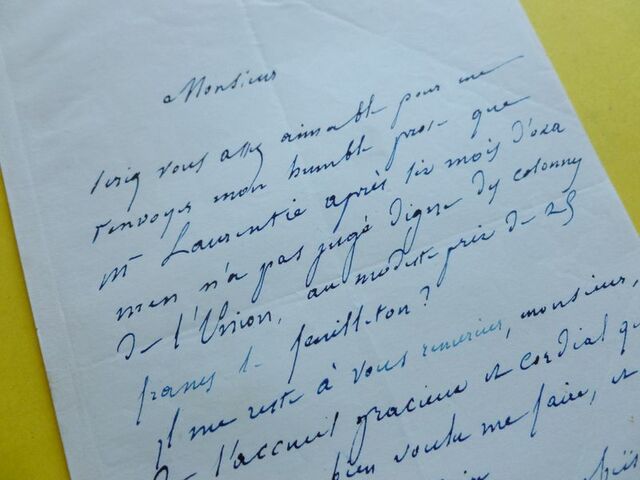 Monsieur
serez vous assez aimable pour me
renvoyer mon humble prose que
Mr Laurentie après six mois d'exa
men n'a pas jugé digne des colonnes
de l'Union, au modeste prix de 25
francs le feuilleton?
Il me reste à vous remercier, monsieur,
de l'accueil gracieux et cordial
bien voulu me faire, et